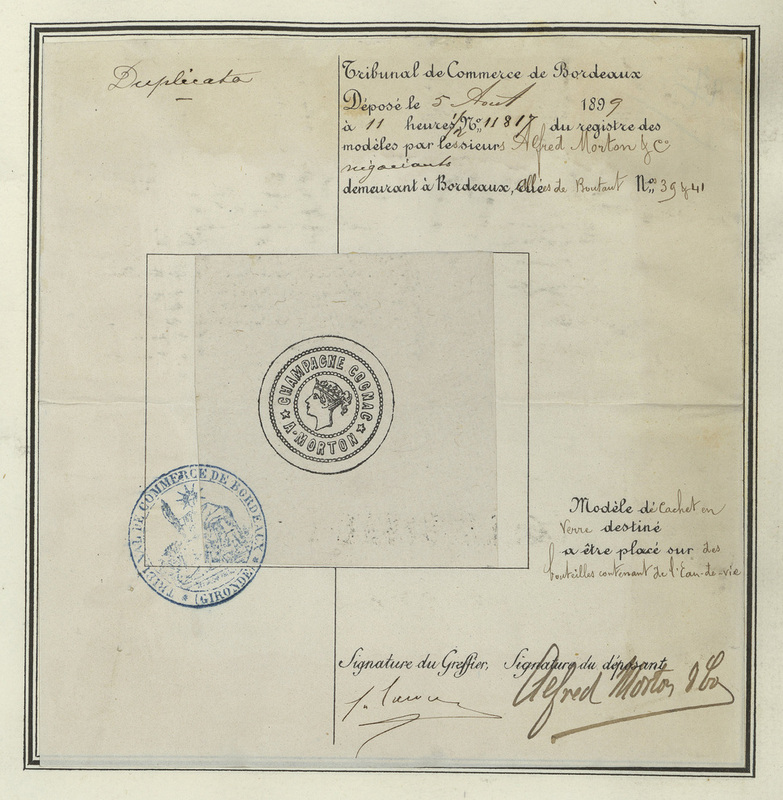 Duplicata
Tribunal de Commerce de Bordeaux
Déposé le 5 Août 1899
à 11 heures 1/2 No. 11817 du registre des
modèles par les sieurs Alfred Morton & Co
négociants
demeurant à Bordeaux, allées de Boutaut Nos. 39 & 41
CHAMPAGNE COGNAC
A. MORTON
TRIBUNAL DE COMMERCE DE BORDEAUX
(GIRONDE)
Modèle de Cachet en
Verre destiné
a être placé sur des
bouteilles contenant de l'Eau-de-vie
Signature du Greffier, Signature du déposant
Alfred Morton & Co